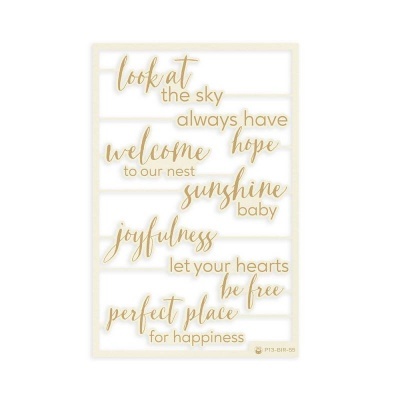 look at
the sky
always have
hope
welcome
to our nest
sunshine
baby
joyfulness
let your hearts
be free
perfect place
for happiness